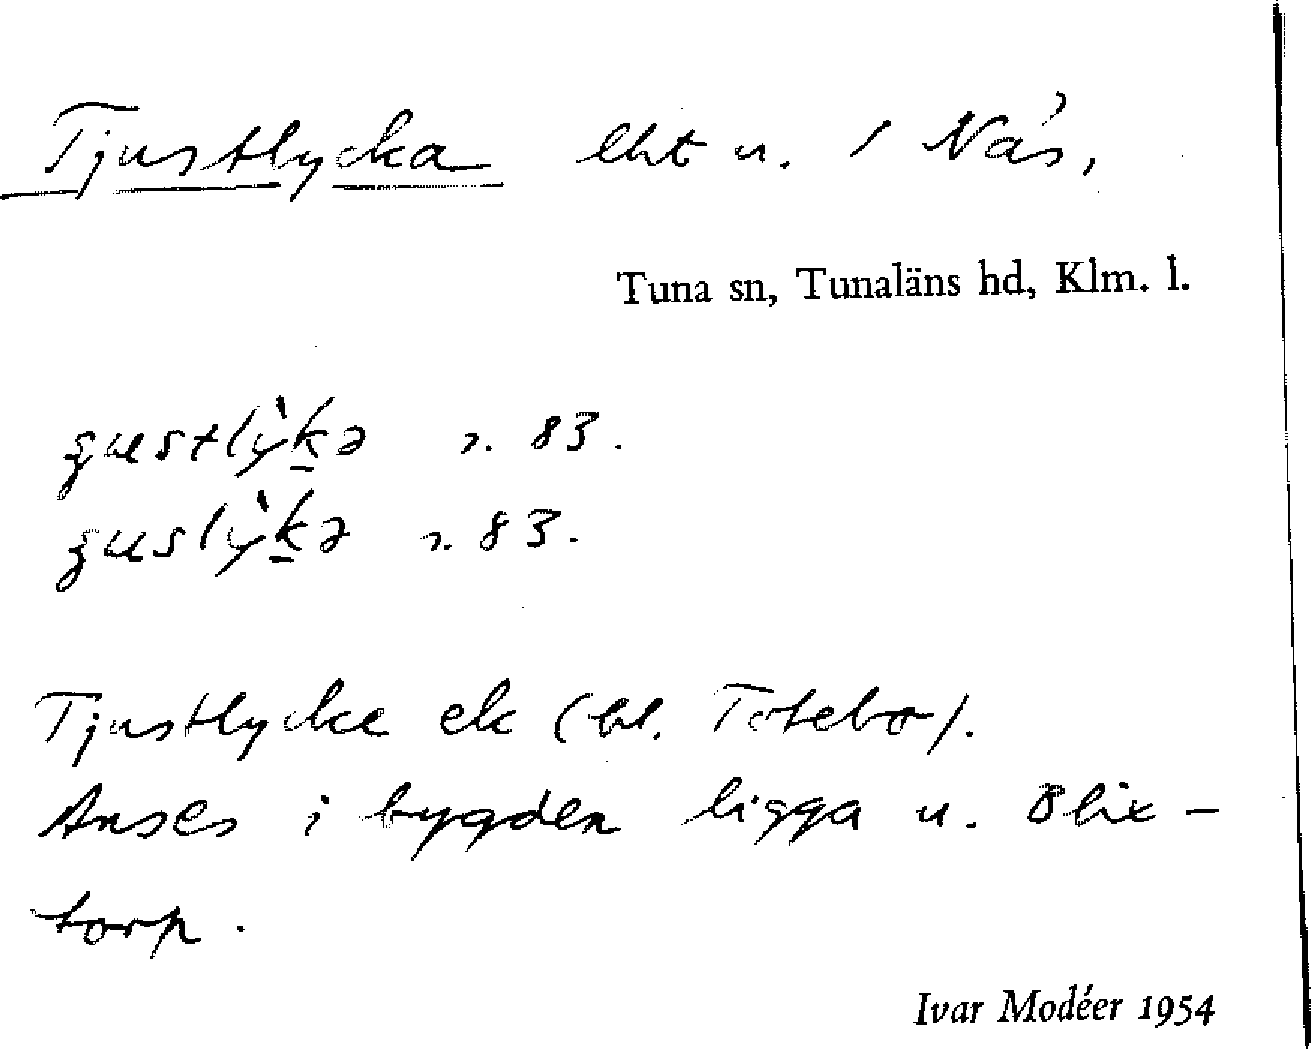 Tjustlycka lht u. 1 Näs,
Tuna sn, Tunaläns hd, Klm. l.
ʒustlỳkə r. 83.
ʒuslỳkə r. 83.
Tjustlycke ek (bl. Totebo).
Anses i bygden ligga u. Blix-
torp.
Ivar Modéer 1954